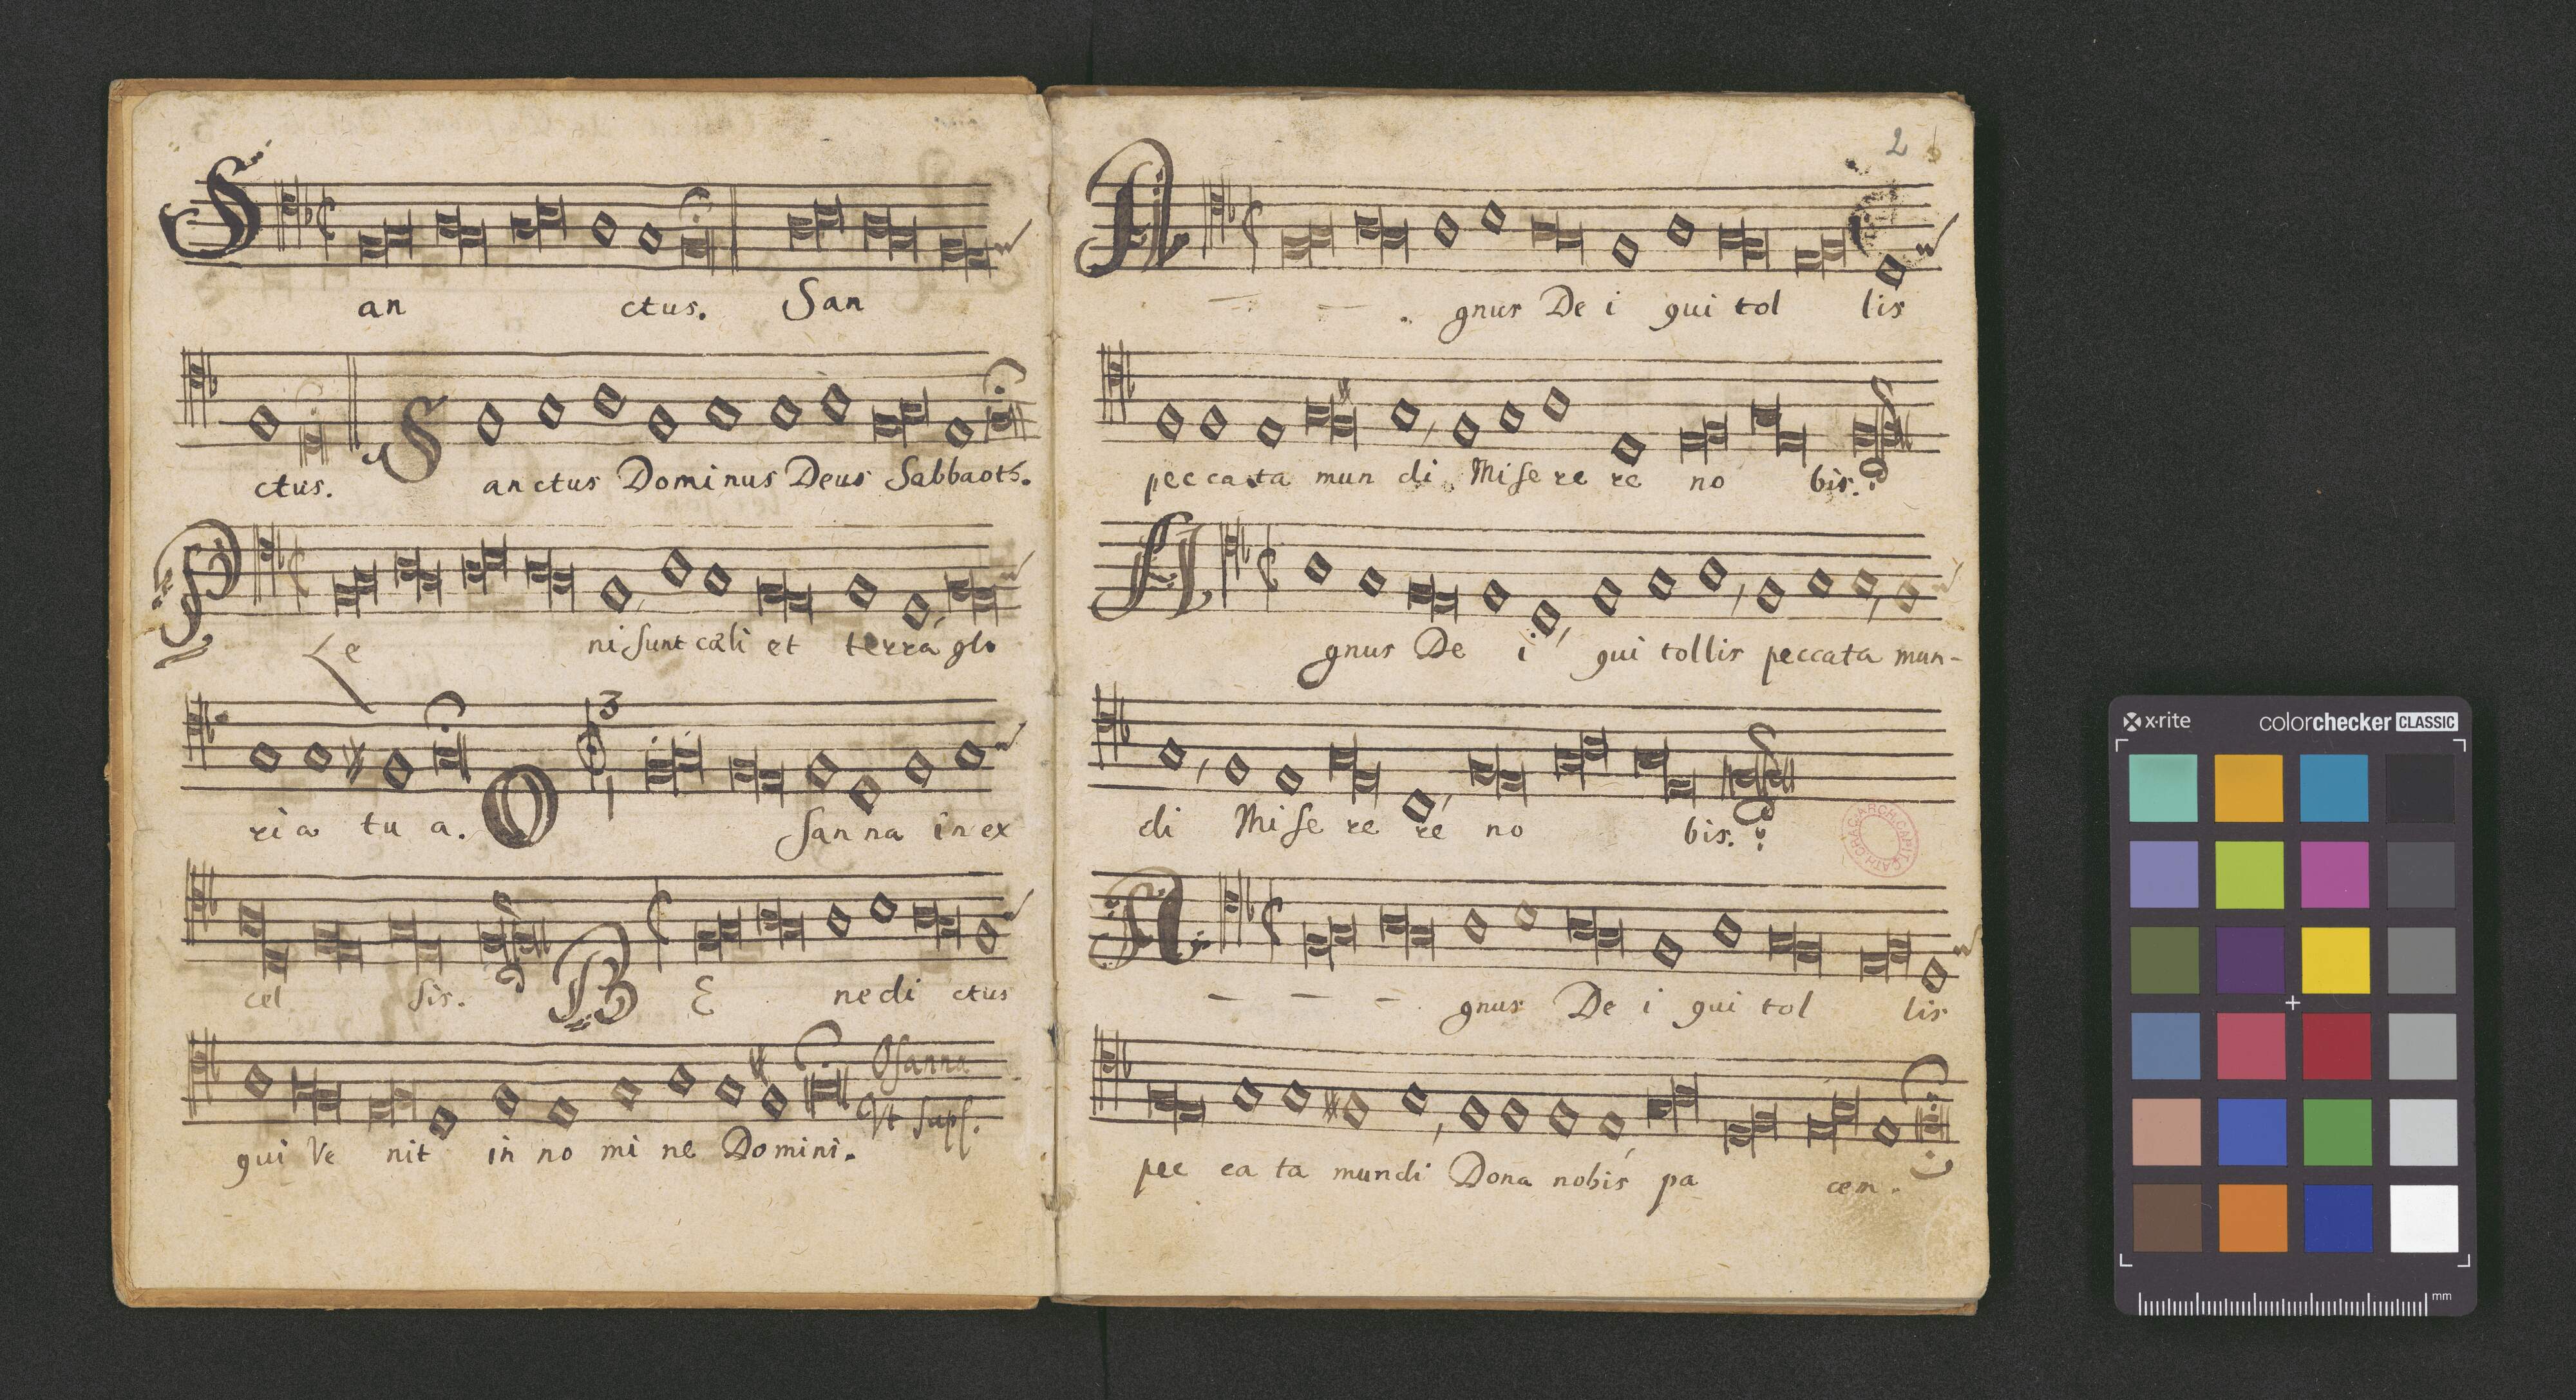 San ctus. San
ctus. Sanctus Dominus Deus Sabbaoth.
Ple ni sunt cæli et terra glo
ria tu a. O 3 sanna in ex
cel sis. BE nedi ctus
Osanna
qui Ve nit in no mi ne Domini. Vt sup.
2
A gnus De i qui tol lis
peccata mun di Misere re no bis.
A gnus De i qui tollis peccata mun-
di Mise re re no bis.
A gnus De i qui tol lis
pec ca ta mundi Dona nobis pa cem.
ARCH. CAPIT. CATH. CRAC.
x-rite colorchecker CLASSIC
mm